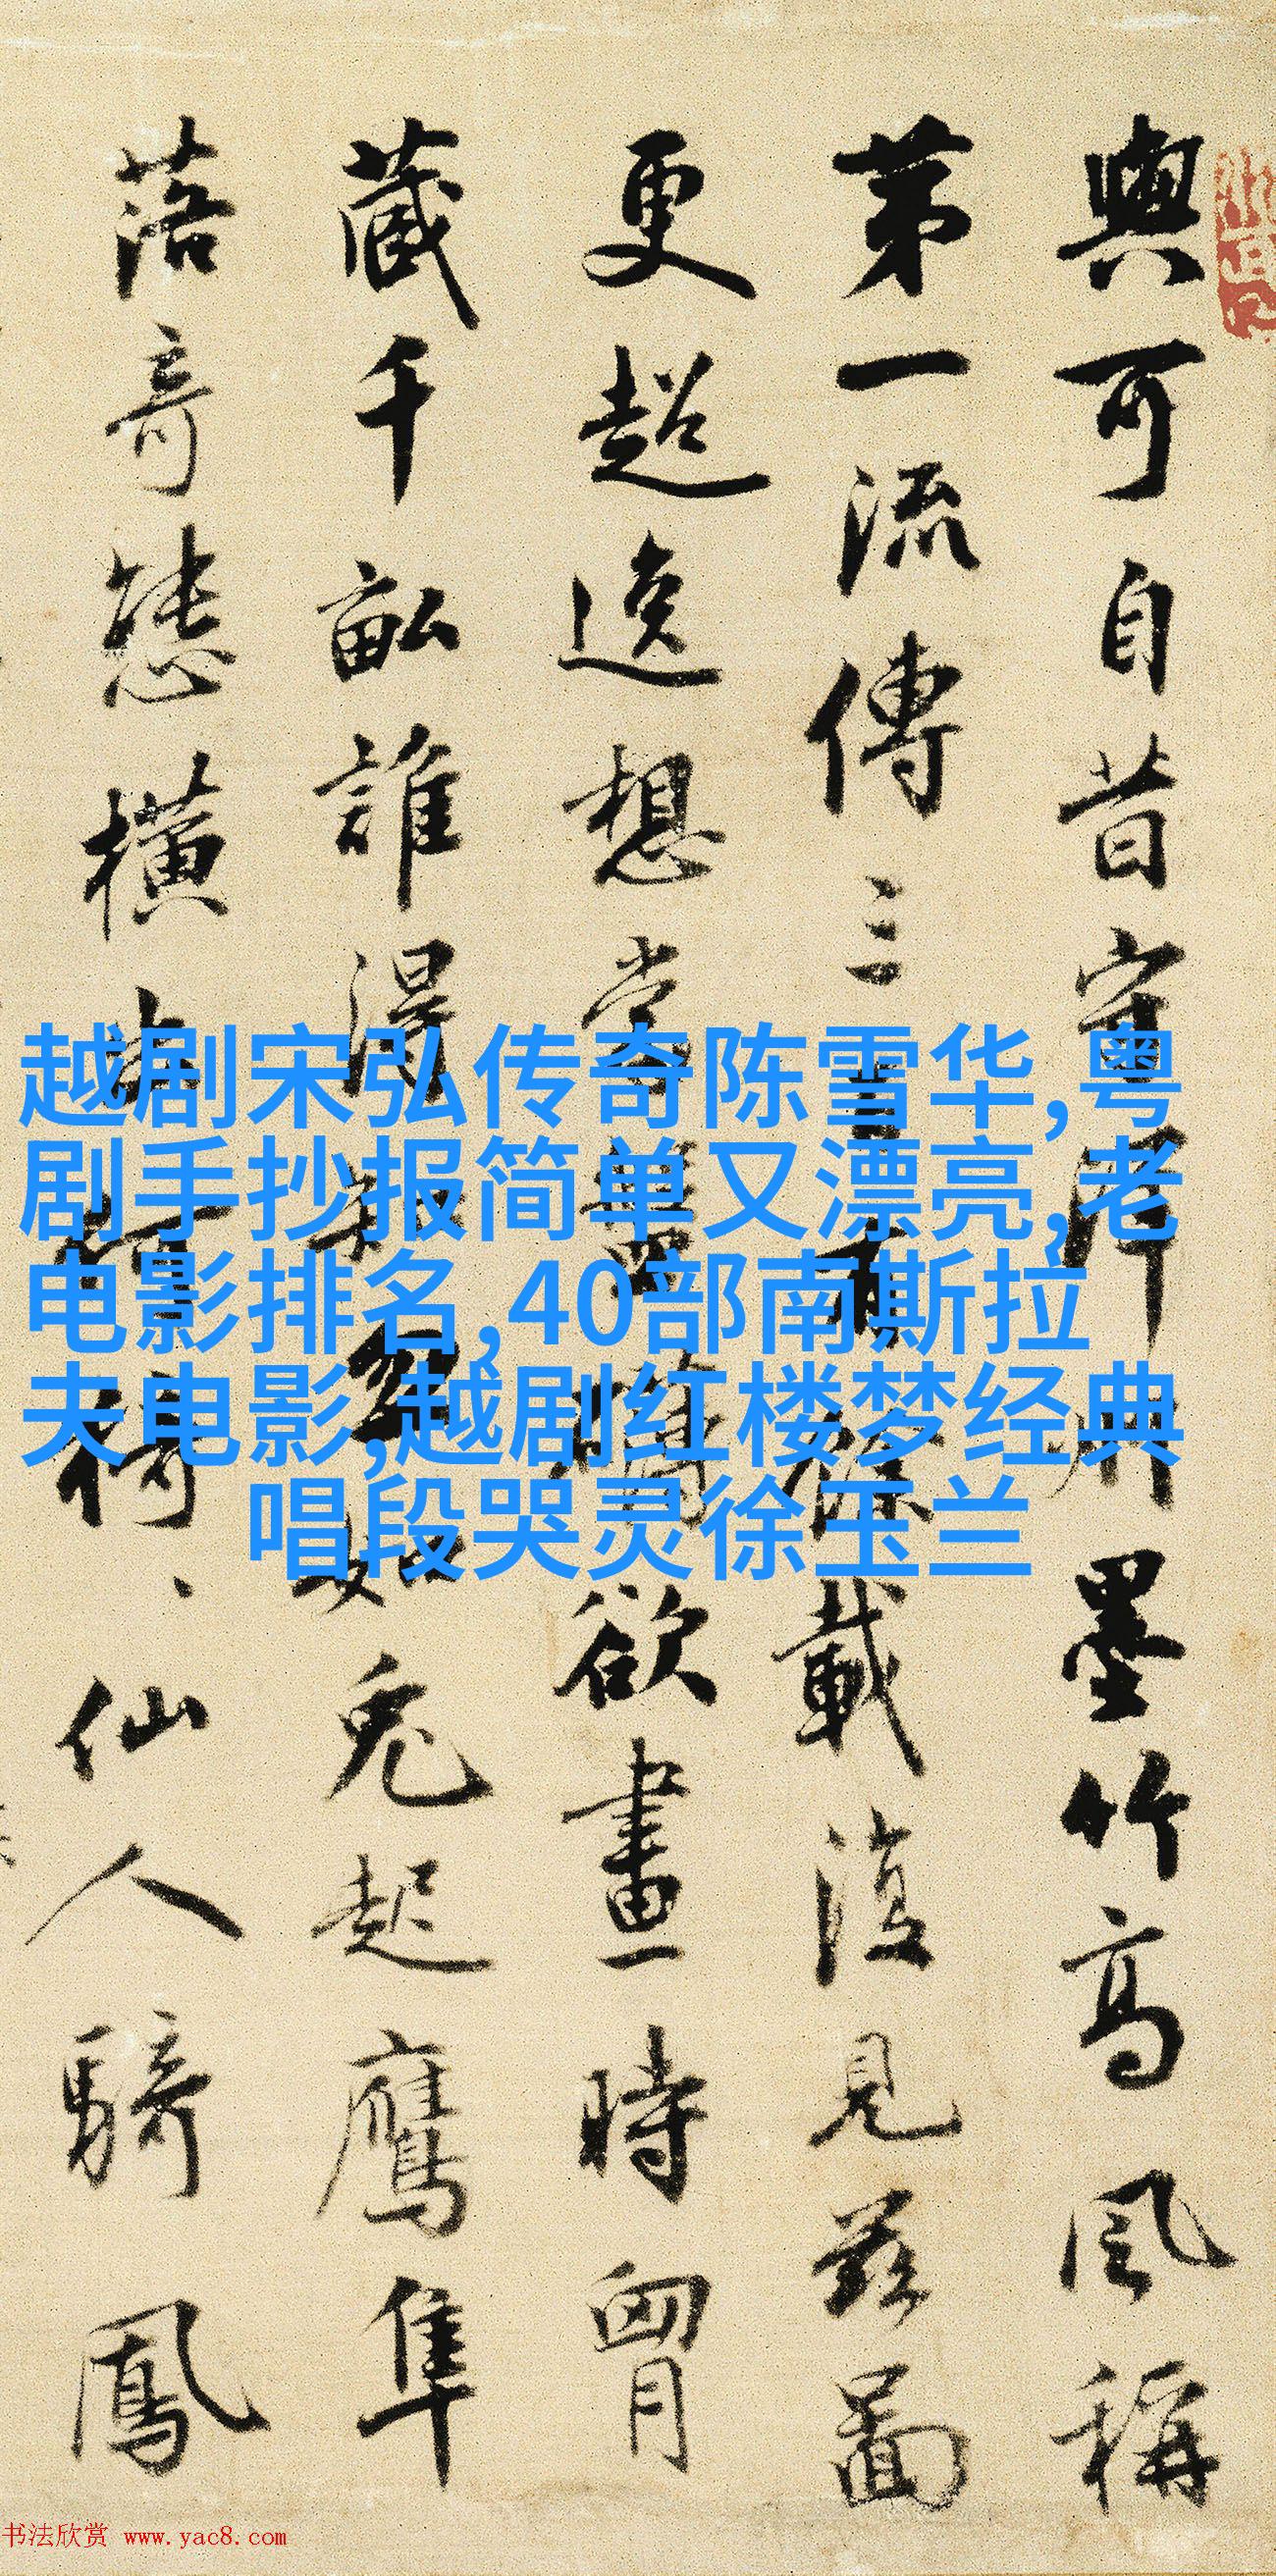 與可自昔守洋州墨竹高風稱
第一流傳三百有餘載復見茲圖
更超逸想當盤礴欲畫時胷
藏千畝誰得知忽如兔起鷹隼
落奇態橫出何猗、仙人騎鳳
越剧宋弘传奇陈雪华,粤
剧手抄报简单又漂亮,老
电影排名,40部南斯拉
夫电影,越剧红楼梦经典
唱段哭灵徐玉兰
书法欣赏 www.yac8.com